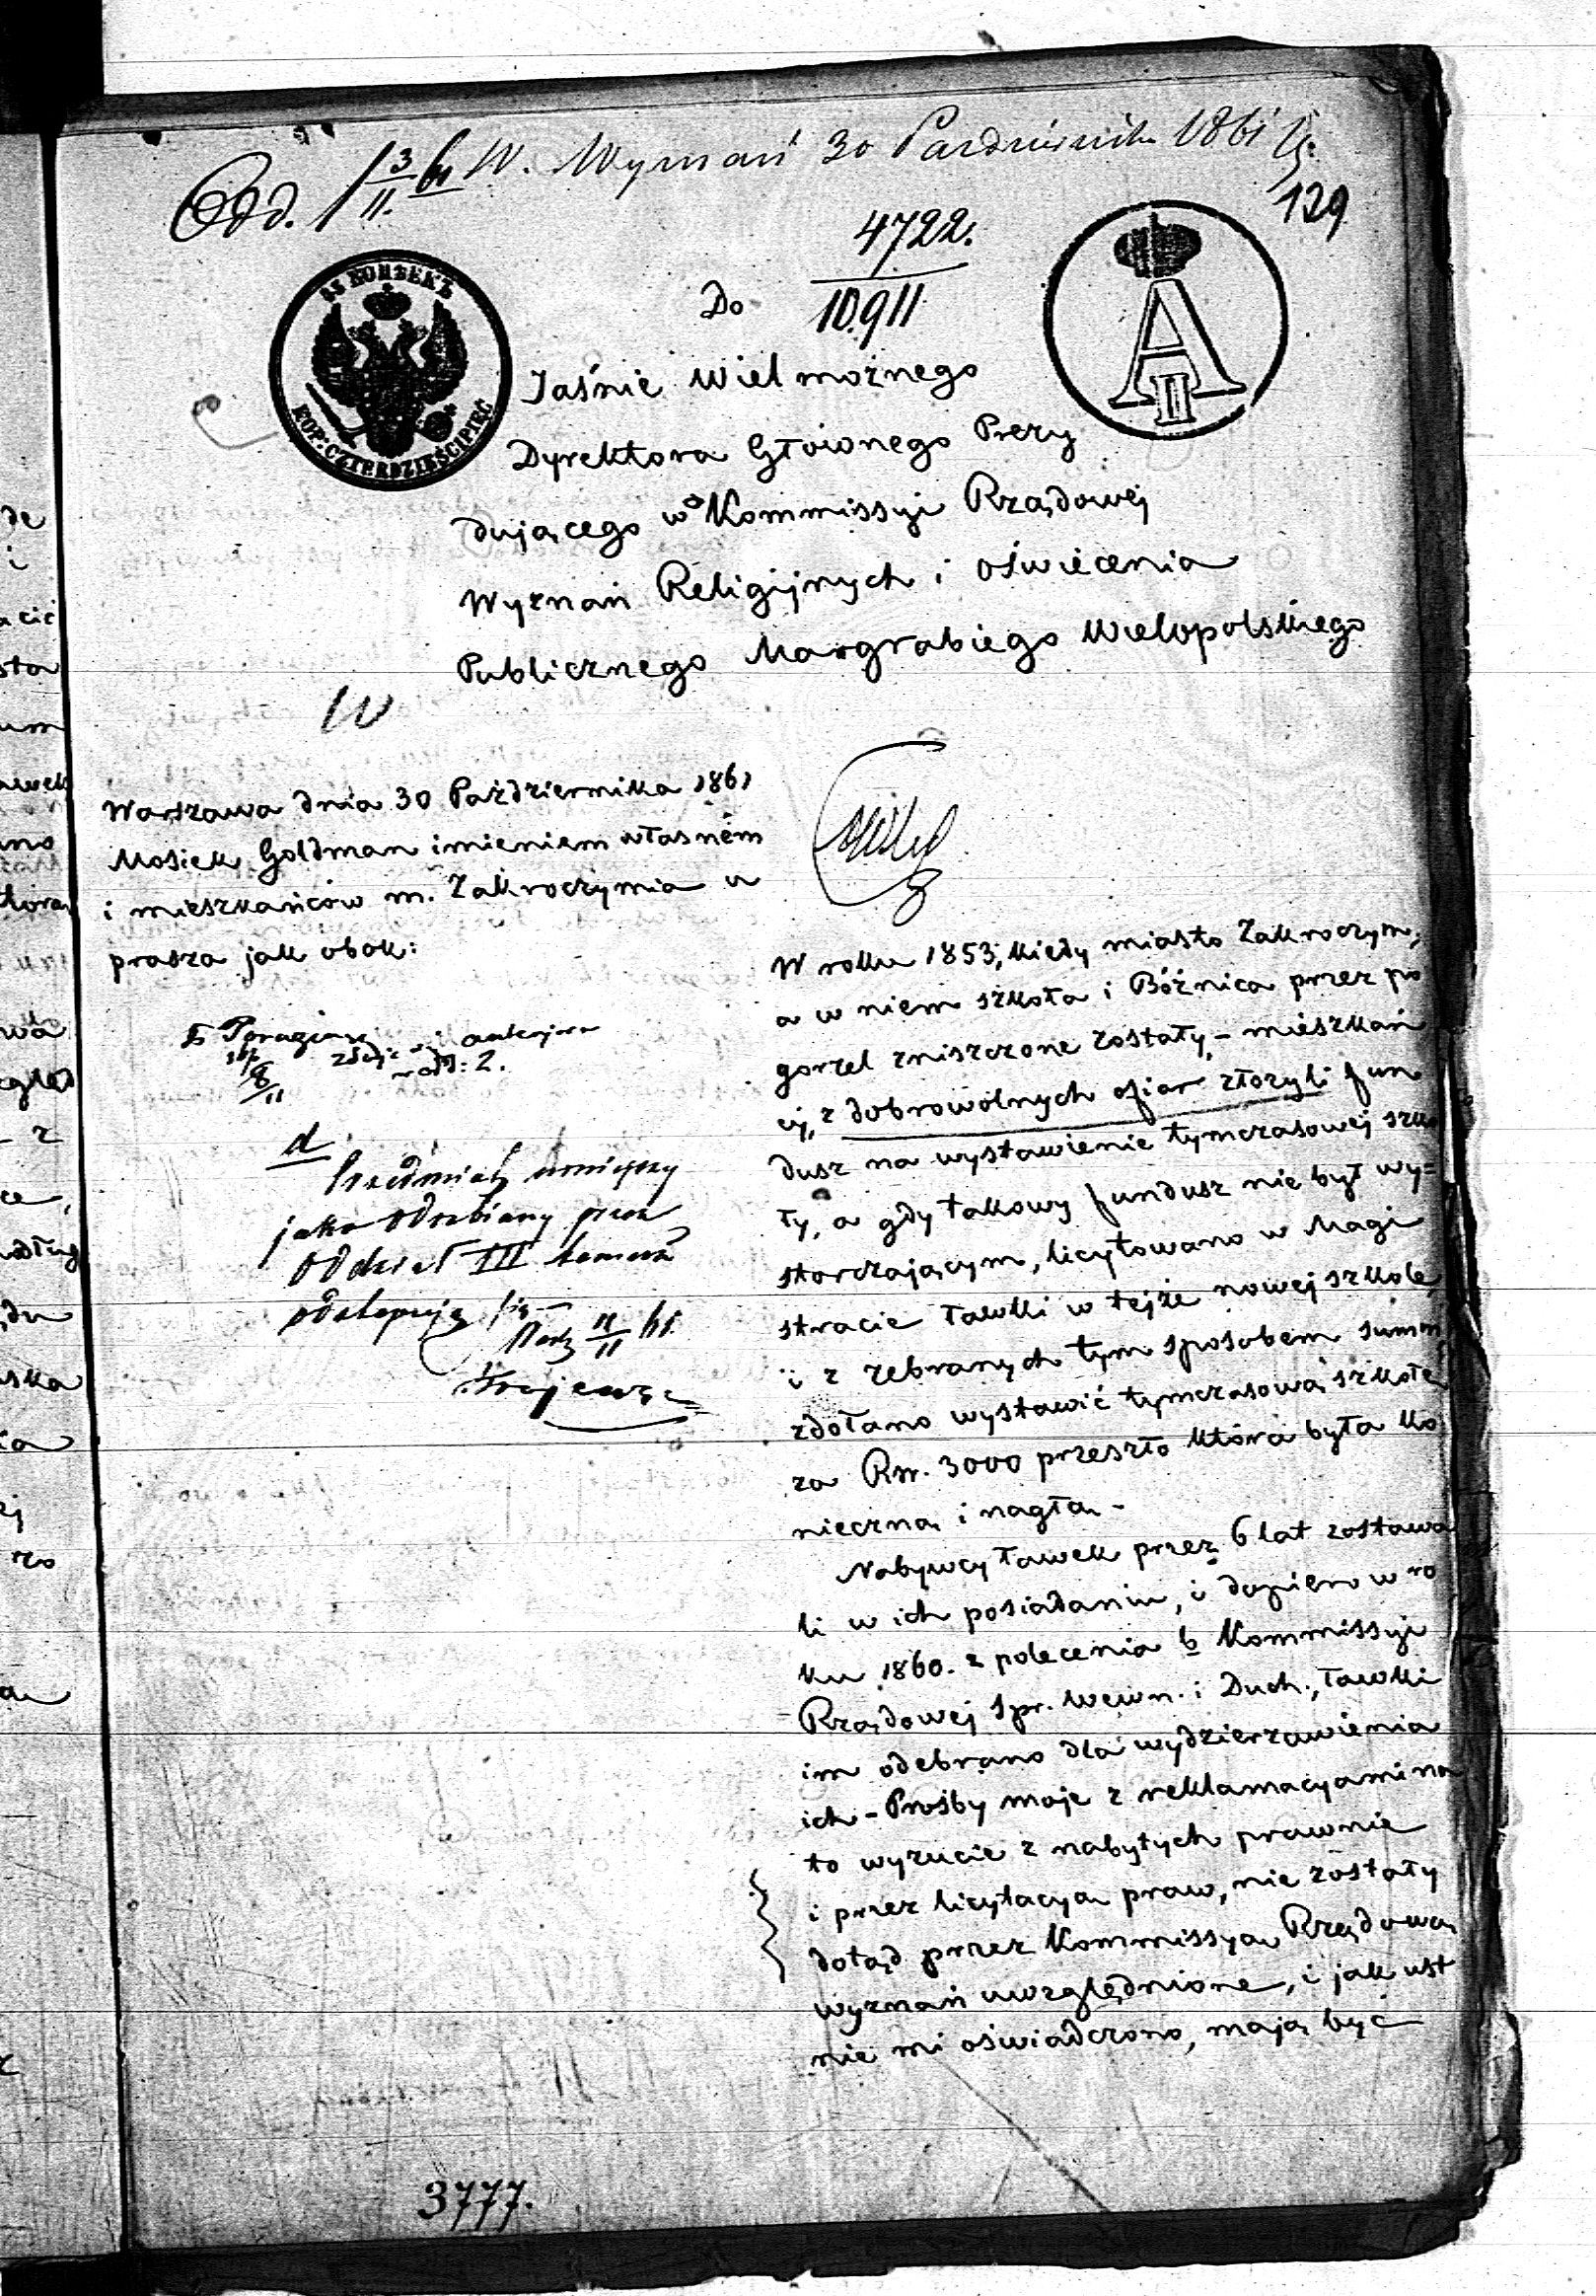 Odd. 1 3/11. 61 W. Wyznań 30 Października 1861
129
4722.
10.911
45 КОПѢЕКЪ
KOP: CZTERDZIEŚCI PIĘĆ
A II
Do
Jaśnie Wielmożnego
Dyrektora Głównego Prezy
dującego w Kommissyi Rządowej
Wyznań Religijnych i Oświecenia
Publicznego Margrabiego Wielopolskiego
W
Warszawa dnia 30 Października 1861
Mosiek Goldman imieniem własném
i mieszkańców m. Zakroczymia u
prasza jak obok:
odstępuję się
11/11 61
W roku 1853, kiedy miasto Zakroczym,
a w niem szkoła i Bóżnica przez po
gorzel zniszczone zostały, – mieszkań
cy, z dobrowolnych ofiar złożyli fun
dusz na wystawienie tymczasowej szko
ły, a gdy takowy fundusz nie był wy=
storczającym, licytowano w Magi
stracie ławki w tejże nowej szkole,
i z zebranych tym sposobem summ
zdołano wystawić tymczasową szkołę
za Rsr. 3000 przeszło która była ko
nieczną i nagłą –
Nabywcy ławek przez 6 lat zostawa
li w ich posiadaniu, i dopiero w ro
ku 1860. z polecenia b Kommissyi
Rządowej Spr. Wewn. i Duch., ławki
im odebrano dla wydzierzawienia
ich – Prośby moje z reklamacyami na
to wyzucie z nabytych prawnie
i przez licytacyą praw, nie zostały
dotąd przez Kommissyą Rządową
wyznań uwzględnione, i jak ust
nie mi oświadczono, mają być
3777.